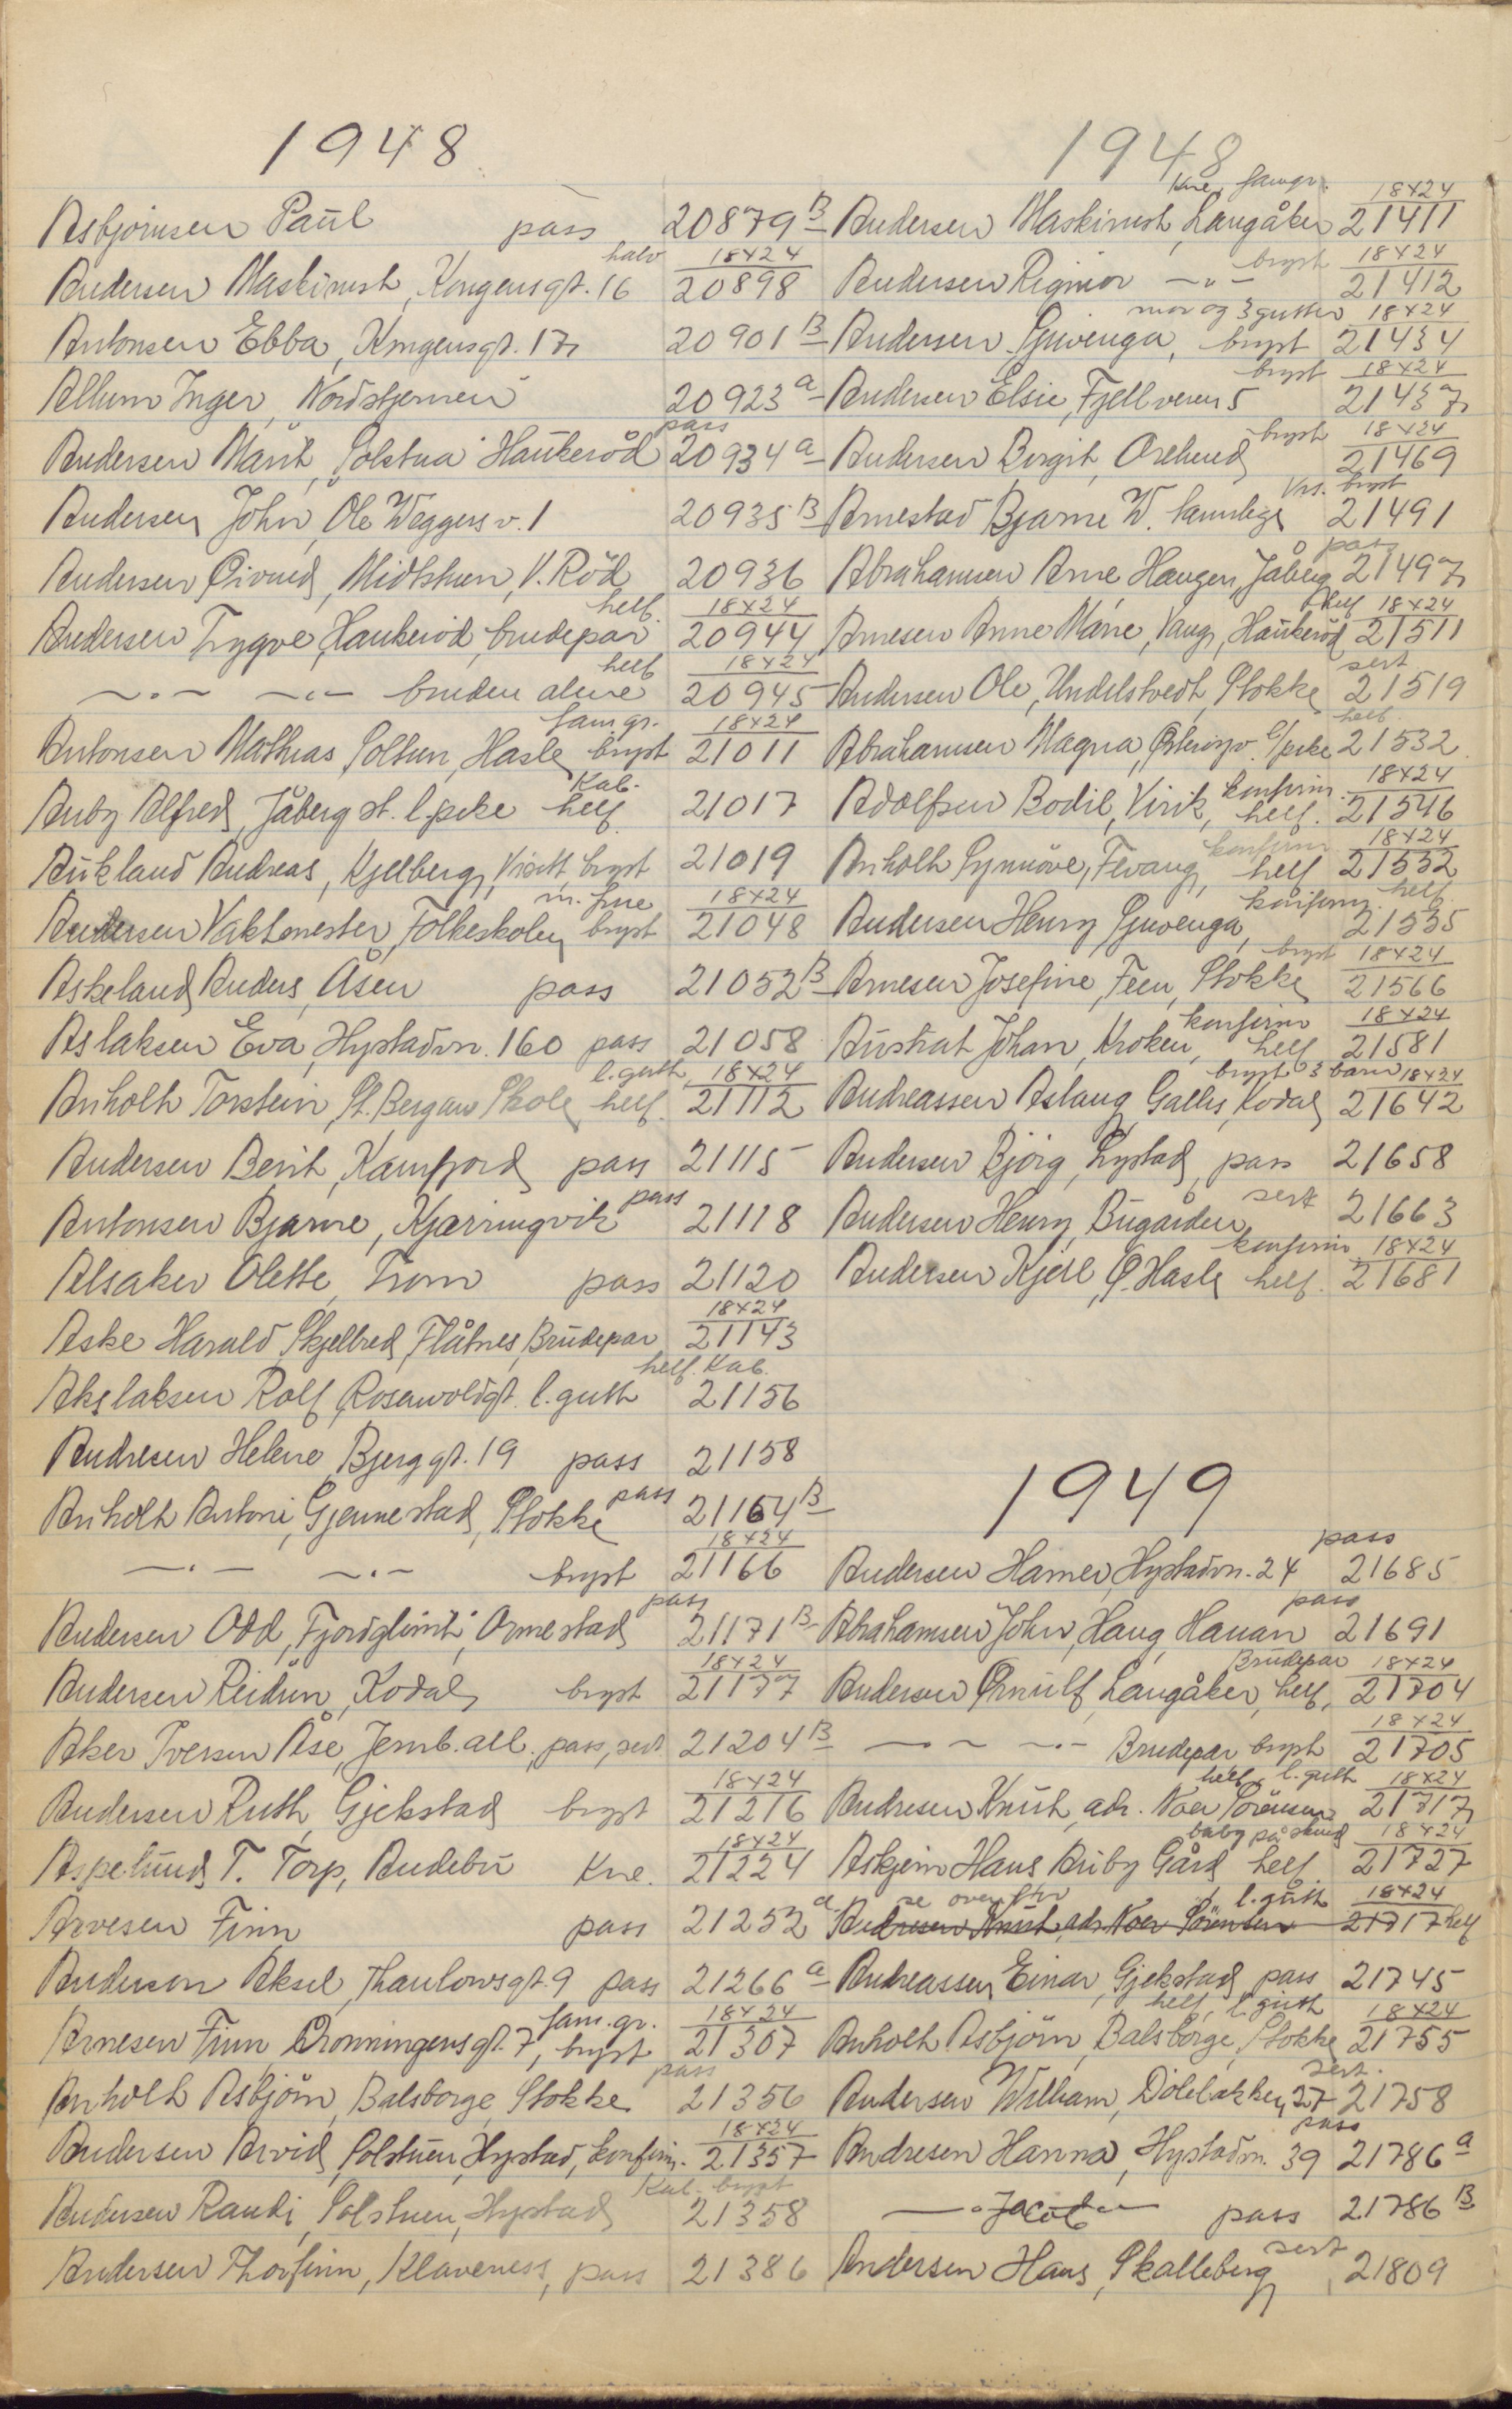 1948
Asbjörnsen Paul pass 20879 B
Andersen Maskinist, Kongensgt. 16 halv 18x24 20898
Antonsen Ebba, Kongensgt. 17 20901 B
Allum Inger, Nordstjernen 20923 a
Andersen Marit, Solstua Haukeröd pass 20934 a
Andersen John, Ole Weggers v. 1 20935 B
Andersen Öivind, Midtstuen, V. Röd 20936
Andersen Trygve, Haukeröd, brudepar helf. 18x24 20944
—"— —"— bruden alene helf 18x24 20945
Antonsen Mathias Soltun, Hasle fam gr. bryst 18x24 21011
Anby Alfred, Jåberg st. l. pike Kab. helf 21017
Aukland Andreas, Kjellberg, Visitt, bryst 21019
Andersen Vaktmester, Folkeskolen m. frue bryst 18x24 21048
Askeland Anders, Åsen pass 21052 B
Aslaksen Eva, Hystadvn. 160 pass 21058
Anholt Torstein, St. Bergan Skole l. gutt helf. 18x24 21112
Andersen Berit, Kamfjord pass 21115
Antonsen Bjarne, Kjærringvik pass 21118
Alsaker Olette, Trom pass 21120
Aske Harald, Skjelbred, Flåtnes, Brudepar 18x24 21143
Akslaksen Rolf, Rosenvoldgt. l. gutt helf. Kab. 21156
Andresen Helene, Bjerggt. 19 pass 21158
Anholt Antoni, Gjennestad, Stokke pass 21164 B
—"— —"— bryst 18x24 21166
Andersen Odd, Fjordglimt, Ormestad pass 21171 B
Andersen Reidun, Kodal bryst 18x24 21177
Aker Iversen Åse, Jernb. all. pass, sert 21204 B
Andersen Ruth, Gjekstad bryst 18x24 21216
Aspelund T. Torp, Andebu Kne. 18x24 21224
Arvesen Finn pass 21252 a
Anderson Aksel, Thaulowsgt. 9 pass 21266 a
Arnesen Finn, Dronningensgt. 7, fam. gr. bryst 18x24 21307
Anholt Asbjörn, Balsborge, Stokke pass 21356
Andersen Arvid, Solstuen, Hystad, konfirm. 18x24 21357
Andersen Randi, Solstuen, Hystad Kab. bryst 21358
Andersen Thorfinn, Klaveness, pass 21386
1948
Andersen Maskinist, Langåker Kne, famgr. 18x24 21411
Andersen Rigmor —"— bryst 18x24 21412
Andersen, Gjuvenga, mor og 3 gutter bryst 18x24 21434
Andersen Elsie, Fjellveien 5 bryst 18x24 21437
Andersen Birgit, Orelund bryst 18x24 21469
Arnestad Bjarne W. tannlege Vis. bryst 21491
Abrahamsen Arne, Haugen, Jåberg pass 21497
Arnesen Anne Marie, Vang, Haukeröd helf 18x24 21511
Andersen Ole, Undelstvedt, Stokke sert 21519
Abrahamsen Magna, l/pike helf. 21532
Adolfsen Bodil, Virik, konfirm. helf. 18x24 21546
Anholt Synnöve, Fevang, konfirm helf 18x24 21552
Andersen Henry, Gjuvenga, konfirm. helf 21535
Arnesen Josefine, Feen, Stokke bryst 18x24 21566
Austrat Johan, Kroken, konfirm helf 18x24 21581
Andreassen Aslaug, Gallis, Kodal bryst 3 barn 18x24 21642
Andersen Björg, Lystad, pass 21658
Andersen Henry, Bugården sert 21663
Andersen Kjell, Ö. Hasle konfirm helf. 18x24 21681
1949
Andersen Hamer, Hystadvn. 24 pass 21685
Abrahamsen John, Haug, Hauan pass 21691
Andersen Örnulf, Langåker, Brudepar helf. 18x24 21704
—"— —"— Brudepar bryst 18x24 21705
Andresen Knut, adr. Noer Sörensen helf, l. gutt 18x24 21717
Askjem Hans Auby Gård baby på skind helf 18x24 21727
se ovenfor
Andresen Knut, adr. Noer Sörensen l. gutt 18x24 21717 helf
Andreassen Einar, Gjekstad pass 21745
Anholt Asbjörn, Balsborge, Stokke helf, l. gutt 18x24 21755
Andersen William, Dölebakken 27 sert. 21758
Andresen Hanna, Hystadvn. 39 pass 21786 a
—"— Jacob —"— pass 21786 B
Andersen Hans, Skalleberg sert 21809